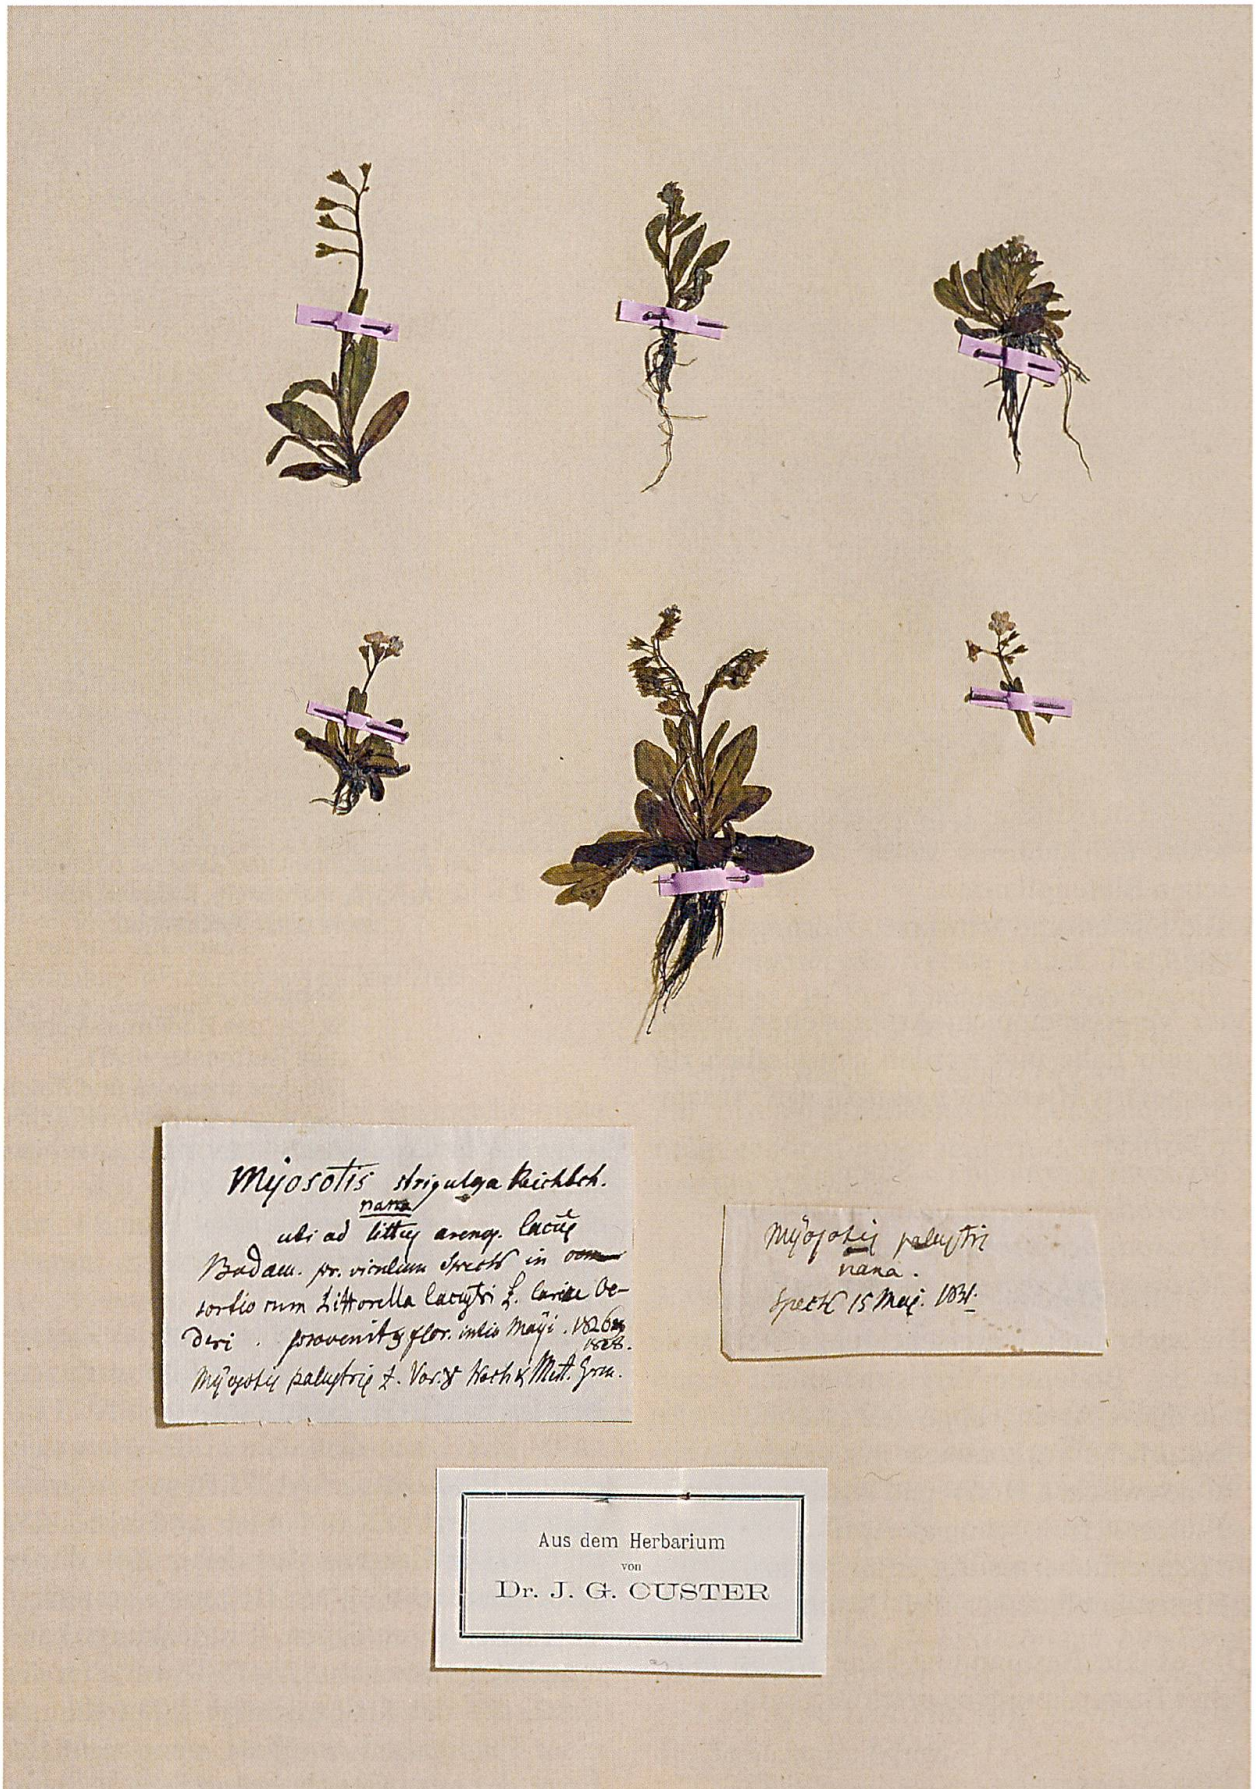 Myosotis strigulosa Reichbch.
nana
ubi ad littus arenos. lacus
Bodam. pr. viculum Speck in
sortio cum Littorella lacustri L. Carice Oe-
deri . provenit & flor. initio Maji . 1826
1828.
Myosotis palustris L. Var. γ Koch & Mert. Grm.
Myosotis palustris
nana.
Speck 15 Maj. 1831.
Aus dem Herbarium
von
Dr. J. G. CUSTER